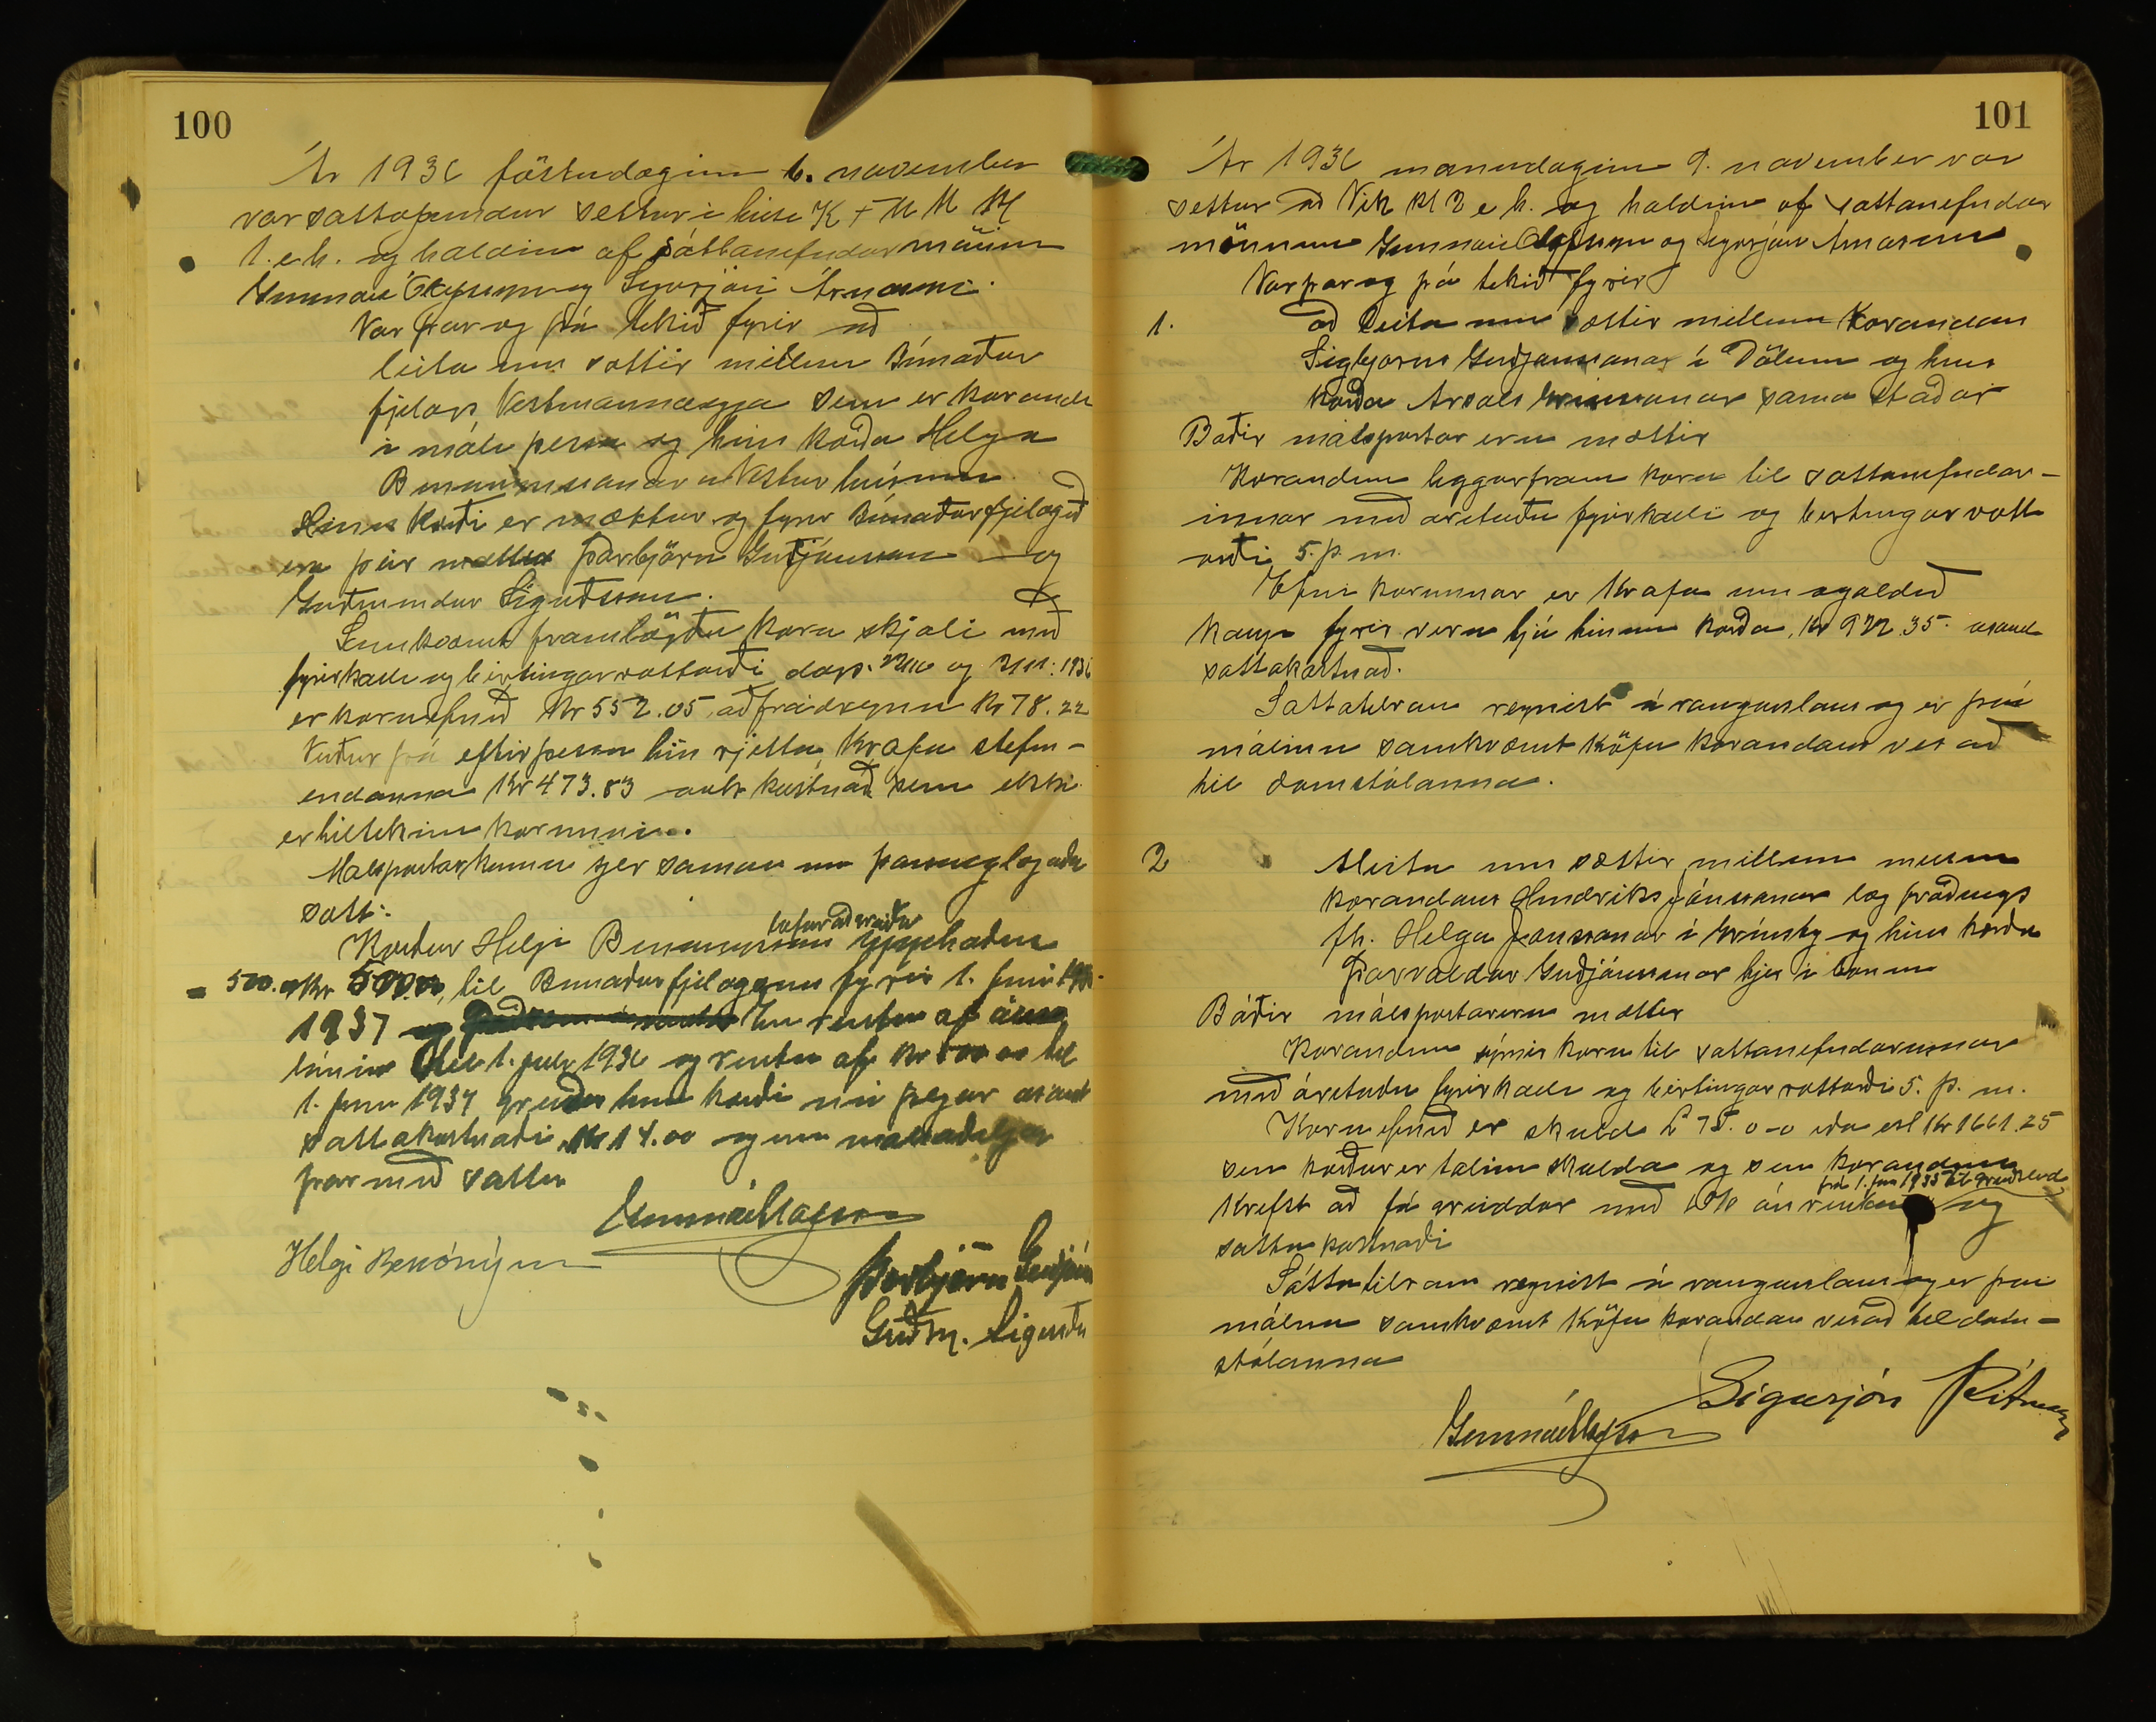 100
Ár 1936 föstudaginn 6. november
var sattafundur settur i húsi K F U M Kl
1. e.h. og haldinn af sáttanefndarmönnum
Gunnari Ólafssyni og Sigurjóni Árnasyni.
Var þar og þá tekið fyrir að
leita um sættir millum Búnaðar
fjelags Vestmannaeyja sem er kærandi
i máli þessu og hins kærða Helga
Benonyssonar Vesturhúsum
Hinn kærði er mættur og fyrir Búnaðarfjelagið
eru þeir mættir Þorbjörn Guðjónsson og
Guðmundur Sigurðsson.
Samkvæmt framlögðu kæru skjali með
fyrirkalli og birtingarvottorði dags. og 1936
er kæruefnið Kr 552.05 að frádregnu Kr 78.22
Verður þá eftir þessu hin rjetta krafa stefn-
endanna Kr 473.83 auk kostnað sem ekki
er tiltekinn kærunni.
Malspartar koma sjer saman um þannig lagaða
satt:
Kærður Helgi Benonysson lofar að greiða
= 500. Kr 500.00, til Bunaðarfjelagsins fyrir 1. juni
1937 En rentu af
láninu til 1. juli 1936 og rentu af kr 500 00 til
1. juni 1937 greiðir hinn kærði nú þegar asamt
sattakostnaði Kr 14.00 og eru malsaðilar
þar með sattir
Gunnar Ólafsson
Helgi Benónýsson
Þorbjörn Guðjóns
Guðm. Sigurðs
101
Ár 1936 manudaginn 9. november var
settur að Vik Kl 2 e h. og haldinn af sattanefndar
mönnum Gunnari Olafssyni og Sigurjóni Arnasyni
Var þar og þá tekið fyrir
1. að leita um sættir millum kærandans
Sigbjorns Guðjonssonar i Dölum og hins
kærða Arsæls Grimssonar sama staðar
Baðir malspartar eru mættir
Kærandinn leggur fram kæru til sattanefndar-
innar með aretuðu fyrirkalli og birtingar vott
orði 5. þ. m.
Efni kærunnar er Krafa um ogoldið
kaup fyrir veru hjá hinum kærða, Kr 922 35. asamt
sattakostnað.
Sattatilraun reynist á rangurslaus og er því
málinu samkvæmt kröfu kærandans vísað
til domstólanna.
2 Aleita um sættir millum
kærandans Hindriks Jónssonar lögfræðings
fh. Helga Jonssonar i Grimsby og hins kærða
Þorvaldar Guðjónssonar hjer i bænum
Báðir málspartar eru mættir
Kærandinn sýnir kæru til sattanefndarinnar
með áretuðu fyrirkalli og birtingarvottorði 5. þ. m.
Kæruefnið er skuld £ 75. 0-0 eða isl Kr 1661.25
sem kærður er talinn skulda og sem kærandinn
frá 1. jan 1935 til greiðsludags
krefst að fá greiddar með 6% ársrentu og
satta kostnaði
Sáttatilraun reynist á rangurslaus og er þvi
málinu samkvæmt kröfu kærandans visað til dom-
stólanna
Sigurjón Árnason
Gunnar Ólafsson